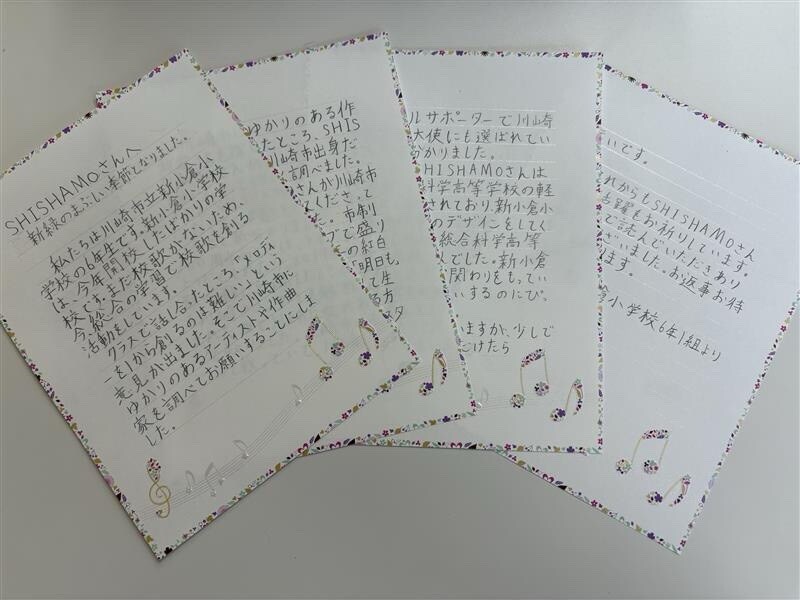 SHISHAMOさんへ
新緑のまぶしい季節となりました。
私たちは川崎市立新小倉小
学校の6年生です。新小倉小学校
は、今年開校したばかりの学
校です。まだ校歌がないため、
今総合の学習で校歌を創る
活動をしています。
クラスで話し合ったところ、「メロディ
ーを1から創るのは難しい」という
意見が出ました。そこで川崎市に
ゆかりのあるアーティストや作曲
家を調べてお願いすることにしま
した。
ゆかりのある作
たところ、SHIS
川崎市出身だ
調べました。
さんが川崎市
てくださって
市制
ブで盛り
の紅白
「明日も
て生
る方
スタ
ルサポーターで川崎
大使にも選ばれてい
かりました。
SHISHAMOさんは
科学高等学校の軽
されており、新小倉小
のデザインをしてく
総合科学高等
んでした。新小倉
関わりをもってい
いするのにぴ
いますが、少しで
だけたら
いです。
れからもSHISHAMOさん
活躍をお祈りしています。
で読んでいただきあり
ざいました。お返事お待
ります。
倉小学校6年1組より